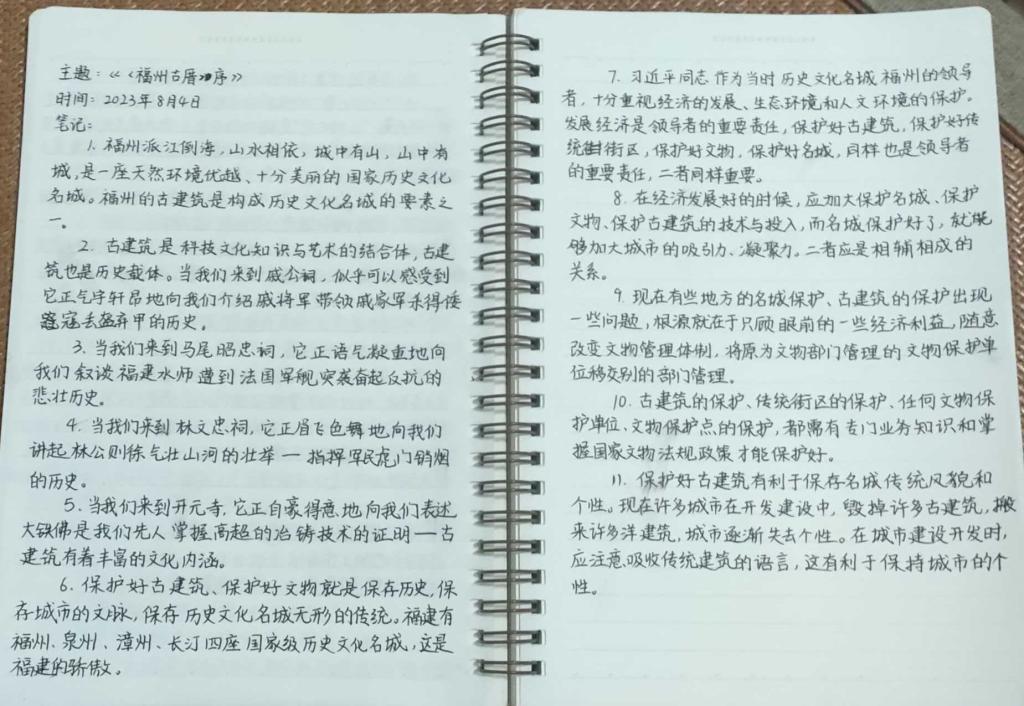 主题：《〈福州古厝〉序》
时间：2023年8月4日
笔记：
1. 福州派江倒海，山水相依，城中有山，山中有
城，是一座天然环境优越、十分美丽的国家历史文化
名城。福州的古建筑是构成历史文化名城的要素之
一。
2. 古建筑是科技文化知识与艺术的结合体，古建
筑也是历史载体。当我们来到戚公祠，似乎可以感受到
它正气宇轩昂地向我们介绍戚将军带领戚家军杀得倭
寇丢盔弃甲的历史。
3. 当我们来到马尾昭忠祠，它正语气凝重地向
我们叙谈福建水师遭到法国军舰突袭奋起反抗的
悲壮历史。
4. 当我们来到林文忠祠，它正眉飞色舞地向我们
讲起林公则徐气壮山河的壮举一指挥军民虎门销烟
的历史。
5. 当我们来到开元寺，它正自豪得意地向我们表述
大铁佛是我们先人掌握高超的冶铸技术的证明——古
建筑有着丰富的文化内涵。
6. 保护好古建筑、保护好文物就是保存历史，保
存城市的文脉，保存历史文化名城无形的传统。福建有
福州、泉州、漳州、长汀四座国家级历史文化名城，这是
福建的骄傲。
7. 习近平同志作为当时历史文化名城福州的领导
者，十分重视经济的发展、生态环境和人文环境的保护。
发展经济是领导者的重要责任，保护好古建筑，保护好传
统街区，保护好文物，保护好名城，同样也是领导者
的重要责任，二者同样重要。
8. 在经济发展好的时候，应加大保护名城、保护
文物、保护古建筑的技术与投入，而名城保护好了，就能
够加大城市的吸引力、凝聚力。二者应是相辅相成的
关系。
9. 现在有些地方的名城保护、古建筑的保护出现
一些问题，根源就在于只顾眼前的一些经济利益，随意
改变文物管理体制，将原为文物部门管理的文物保护单
位移交别的部门管理。
10. 古建筑的保护、传统街区的保护、任何文物保
护单位、文物保护点的保护，都需有专门业务知识和掌
握国家文物法规政策才能保护好。
11. 保护好古建筑有利于保存名城传统风貌和
个性。现在许多城市在开发建设中，毁掉许多古建筑，搬
来许多洋建筑，城市逐渐失去个性。在城市建设开发时，
应注意吸收传统建筑的语言，这有利于保持城市的个
性。